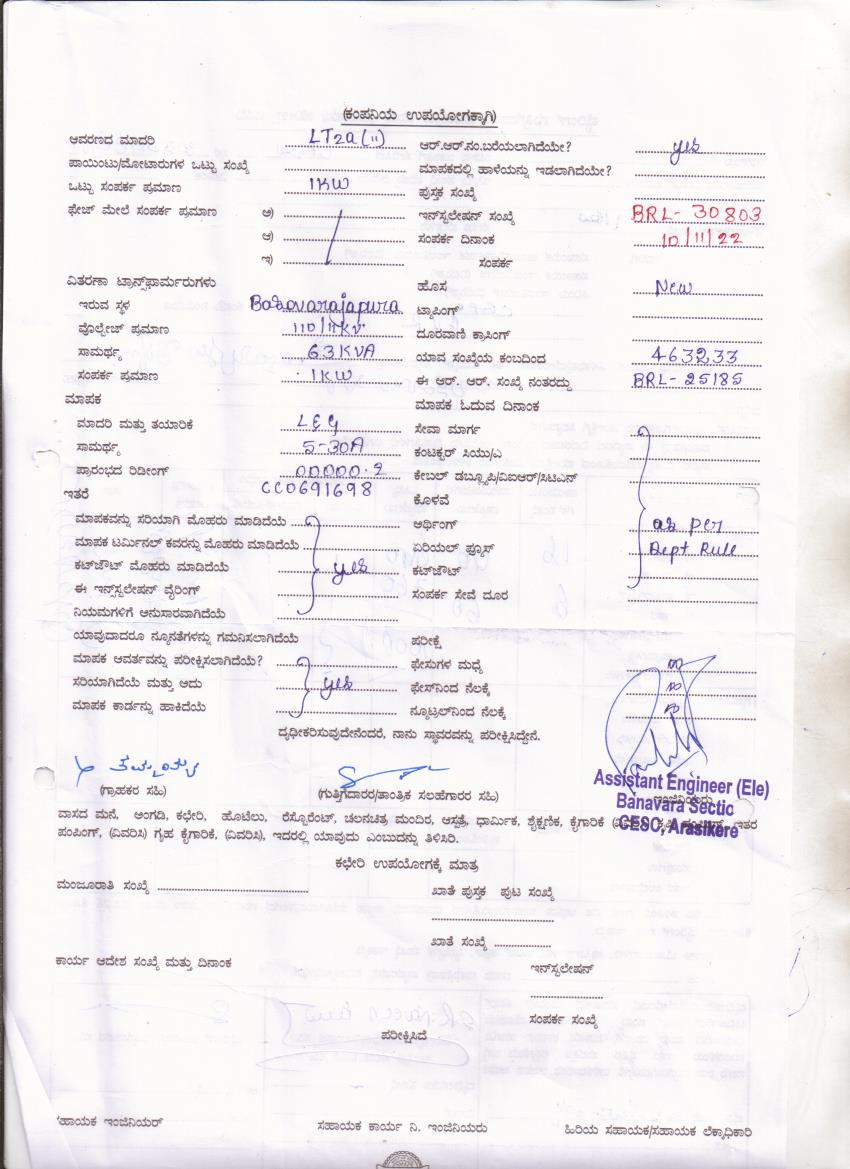 (ಕಂಪನಿಯ ಉಪಯೋಗಕ್ಕಾಗಿ)
ಆವರಣದ ಮಾದರಿ LT2a(ii) ಆರ್.ಆರ್.ನಂ.ಬರೆಯಲಾಗಿದೆಯೇ? yes
ಪಾಯಿಂಟು/ಮೋಟಾರುಗಳ ಒಟ್ಟು ಸಂಖ್ಯೆ ಮಾಪಕದಲ್ಲಿ ಹಾಳೆಯನ್ನು ಇಡಲಾಗಿದೆಯೇ?
ಒಟ್ಟು ಸಂಪರ್ಕ ಪ್ರಮಾಣ 1KW ಪುಸ್ತಕ ಸಂಖ್ಯೆ
ಫೇಜ್ ಮೇಲೆ ಸಂಪರ್ಕ ಪ್ರಮಾಣ ಅ) ಇನ್‌ಸ್ಟಲೇಷನ್ ಸಂಖ್ಯೆ BRL- 30803
ಆ) ಸಂಪರ್ಕ ದಿನಾಂಕ 10/11/22
ಇ) ಸಂಪರ್ಕ
ವಿತರಣಾ ಟ್ರಾನ್ಸ್‌ಫಾರ್ಮರುಗಳು ಹೊಸ New
ಇರುವ ಸ್ಥಳ Basavarajapura ಟ್ಯಾಪಿಂಗ್
ವೊಲ್ಟೇಜ್ ಪ್ರಮಾಣ 110/11KV ದೂರವಾಣಿ ಕ್ರಾಸಿಂಗ್
ಸಾಮರ್ಥ್ಯ 63KVA ಯಾವ ಸಂಖ್ಯೆಯ ಕಂಬದಿಂದ 463233
ಸಂಪರ್ಕ ಪ್ರಮಾಣ 1KW ಈ ಆರ್. ಆರ್. ಸಂಖ್ಯೆ ನಂತರದ್ದು BRL- 25185
ಮಾಪಕ ಮಾಪಕ ಓದುವ ದಿನಾಂಕ
ಮಾದರಿ ಮತ್ತು ತಯಾರಿಕೆ L&G ಸೇವಾ ಮಾರ್ಗ
ಸಾಮರ್ಥ್ಯ 5-30A ಕಂಟಕ್ಟರ್ ಸಿಯು/ಎ
ಪ್ರಾರಂಭದ ರಿಡೀಂಗ್ 00000.2 ಕೇಬಲ್ ಡಬ್ಲ್ಯೂಪಿ/ವಿಐಆರ್/ಸಿಟಿಎಸ್
ಇತರೆ CC0691698 ಕೊಳವೆ
ಮಾಪಕವನ್ನು ಸರಿಯಾಗಿ ಮೊಹರು ಮಾಡಿದೆಯೆ ಆರ್ಥಿಂಗ್ as per
ಮಾಪಕ ಟರ್ಮಿನಲ್ ಕವರನ್ನು ಮೊಹರು ಮಾಡಿದೆಯೆ ಏರಿಯಲ್ ಫ್ಯೂಸ್ Dept Rule
ಕಟ್‌ಔಟ್ ಮೊಹರು ಮಾಡಿದೆಯೆ yes ಕಟ್‌ಔಟ್
ಈ ಇನ್ಸ್‌ಸ್ಟಲೇಷನ್ ವೈರಿಂಗ್ ಸಂಪರ್ಕ ಸೇವೆ ದೂರ
ನಿಯಮಗಳಿಗೆ ಅನುಸಾರವಾಗಿದೆಯೆ
ಯಾವುದಾದರೂ ನ್ಯೂನತೆಗಳನ್ನು ಗಮನಿಸಲಾಗಿದೆಯೆ ಪರೀಕ್ಷೆ
ಮಾಪಕ ಆವರ್ತವನ್ನು ಪರೀಕ್ಷಿಸಲಾಗಿದೆಯೆ? ಫೇಸುಗಳ ಮಧ್ಯೆ
ಸರಿಯಾಗಿದೆಯೆ ಮತ್ತು ಅದು yes ಫೇಸ್‌ನಿಂದ ನೆಲಕ್ಕೆ
ಮಾಪಕ ಕಾರ್ಡನ್ನು ಹಾಕಿದೆಯೆ ನ್ಯೂಟ್ರಲ್‌ನಿಂದ ನೆಲಕ್ಕೆ
ದೃಢೀಕರಿಸುವುದೇನೆಂದರೆ, ನಾನು ಸ್ಥಾವರವನ್ನು ಪರೀಕ್ಷಿಸಿದ್ದೇನೆ.
(ಗ್ರಾಹಕರ ಸಹಿ) (ಗುತ್ತಿಗೆದಾರರ/ತಾಂತ್ರಿಕ ಸಲಹೆಗಾರರ ಸಹಿ) ಇಂಜಿನಿಯರು
Assistant Engineer (Ele)
Banavara Sectio
CESC, Arasikere
ವಾಸದ ಮನೆ, ಅಂಗಡಿ, ಕಛೇರಿ, ಹೊಟೆಲು, ರೆಸ್ಟೊರೆಂಟ್, ಚಲನಚಿತ್ರ ಮಂದಿರ, ಆಸ್ಪತ್ರೆ, ಧಾರ್ಮಿಕ, ಶೈಕ್ಷಣಿಕ, ಕೈಗಾರಿಕೆ ಇತರ
ಪಂಪಿಂಗ್, (ವಿವರಿಸಿ) ಗೃಹ ಕೈಗಾರಿಕೆ, (ವಿವರಿಸಿ), ಇದರಲ್ಲಿ ಯಾವುದು ಎಂಬುದನ್ನು ತಿಳಿಸಿರಿ.
ಕಛೇರಿ ಉಪಯೋಗಕ್ಕೆ ಮಾತ್ರ
ಮಂಜೂರಾತಿ ಸಂಖ್ಯೆ ಖಾತೆ ಪುಸ್ತಕ ಪುಟ ಸಂಖ್ಯೆ
ಖಾತೆ ಸಂಖ್ಯೆ
ಕಾರ್ಯ ಆದೇಶ ಸಂಖ್ಯೆ ಮತ್ತು ದಿನಾಂಕ ಇನ್‌ಸ್ಟಲೇಷನ್
ಸಂಪರ್ಕ ಸಂಖ್ಯೆ
ಪರೀಕ್ಷಿಸಿದೆ
ಹಾಯಕ ಇಂಜಿನಿಯರ್ ಸಹಾಯಕ ಕಾರ್ಯ ನಿ. ಇಂಜಿನಿಯರು ಹಿರಿಯ ಸಹಾಯಕ/ಸಹಾಯಕ ಲೆಕ್ಕಾಧಿಕಾರಿ